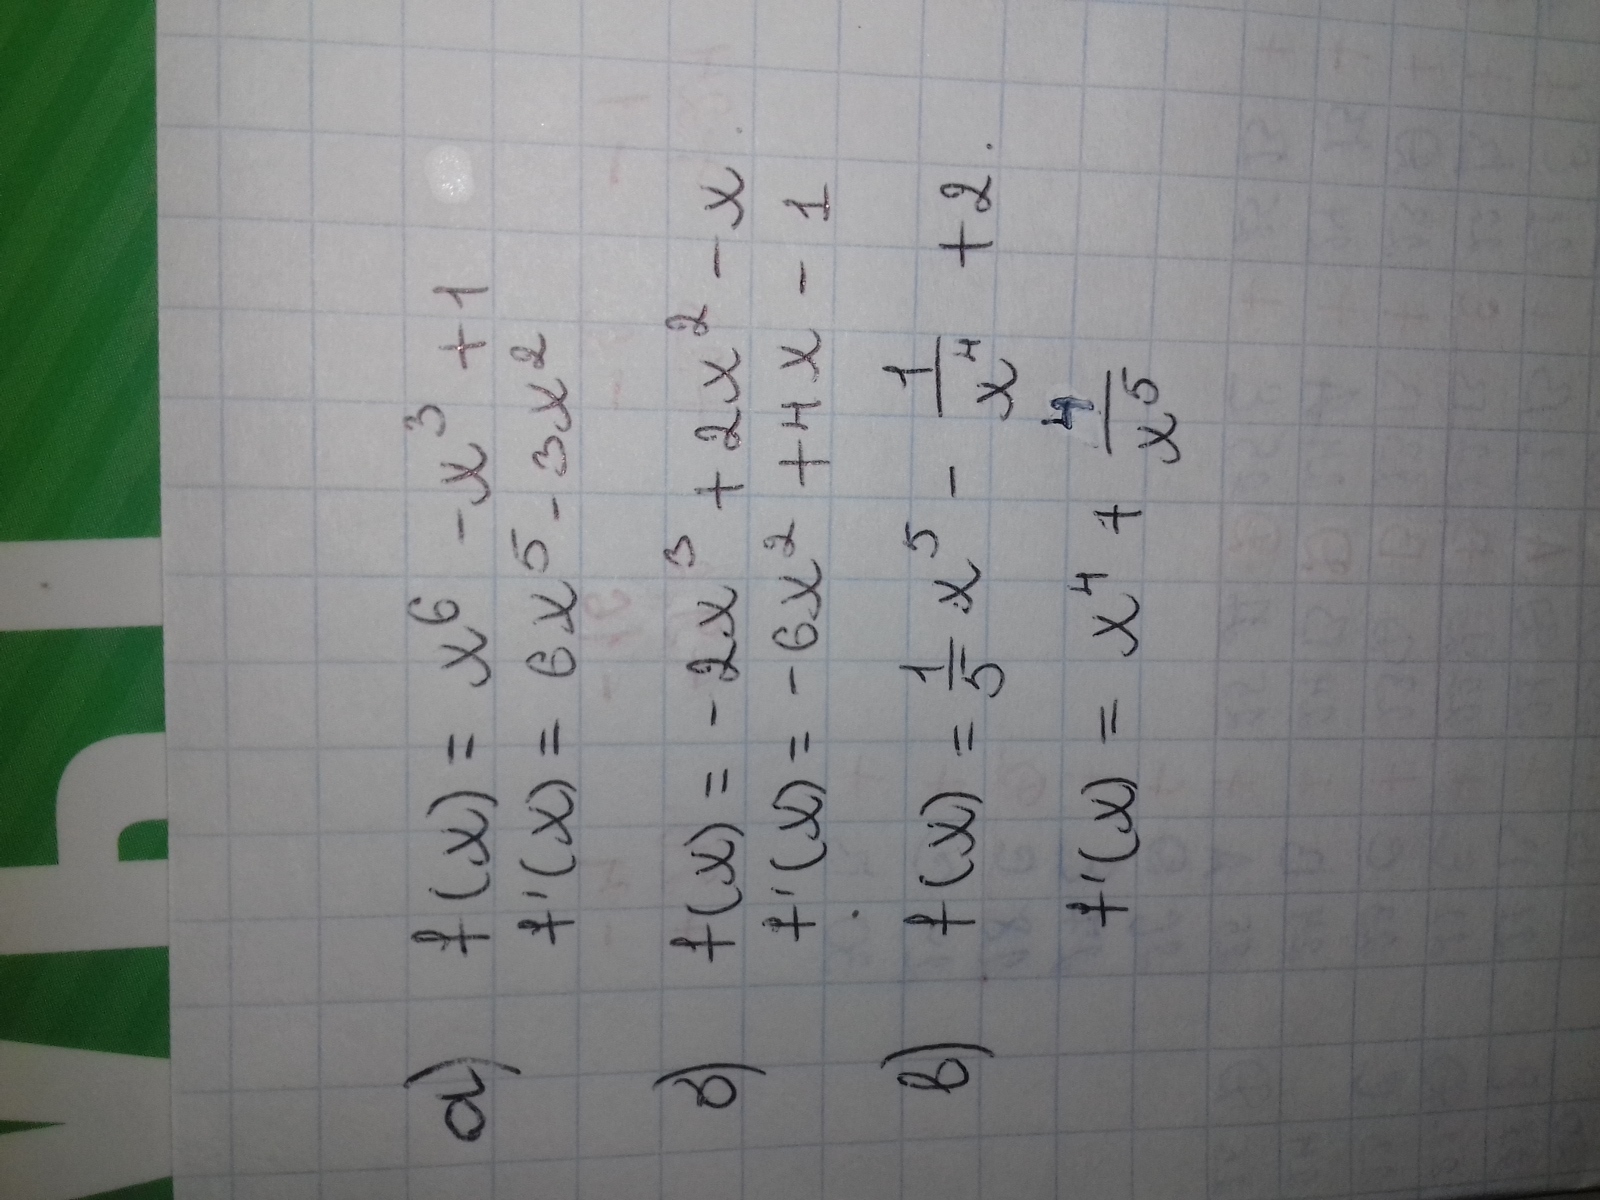 а) f(x) = x⁶ - x³ + 1
f'(x) = 6x⁵ - 3x²
б) f(x) = -2x³ + 2x² - x
f'(x) = -6x² + 4x - 1
в) f(x) = 1/5 x⁵ - 1/x⁴ + 2.
f'(x) = x⁴ + 4/x⁵